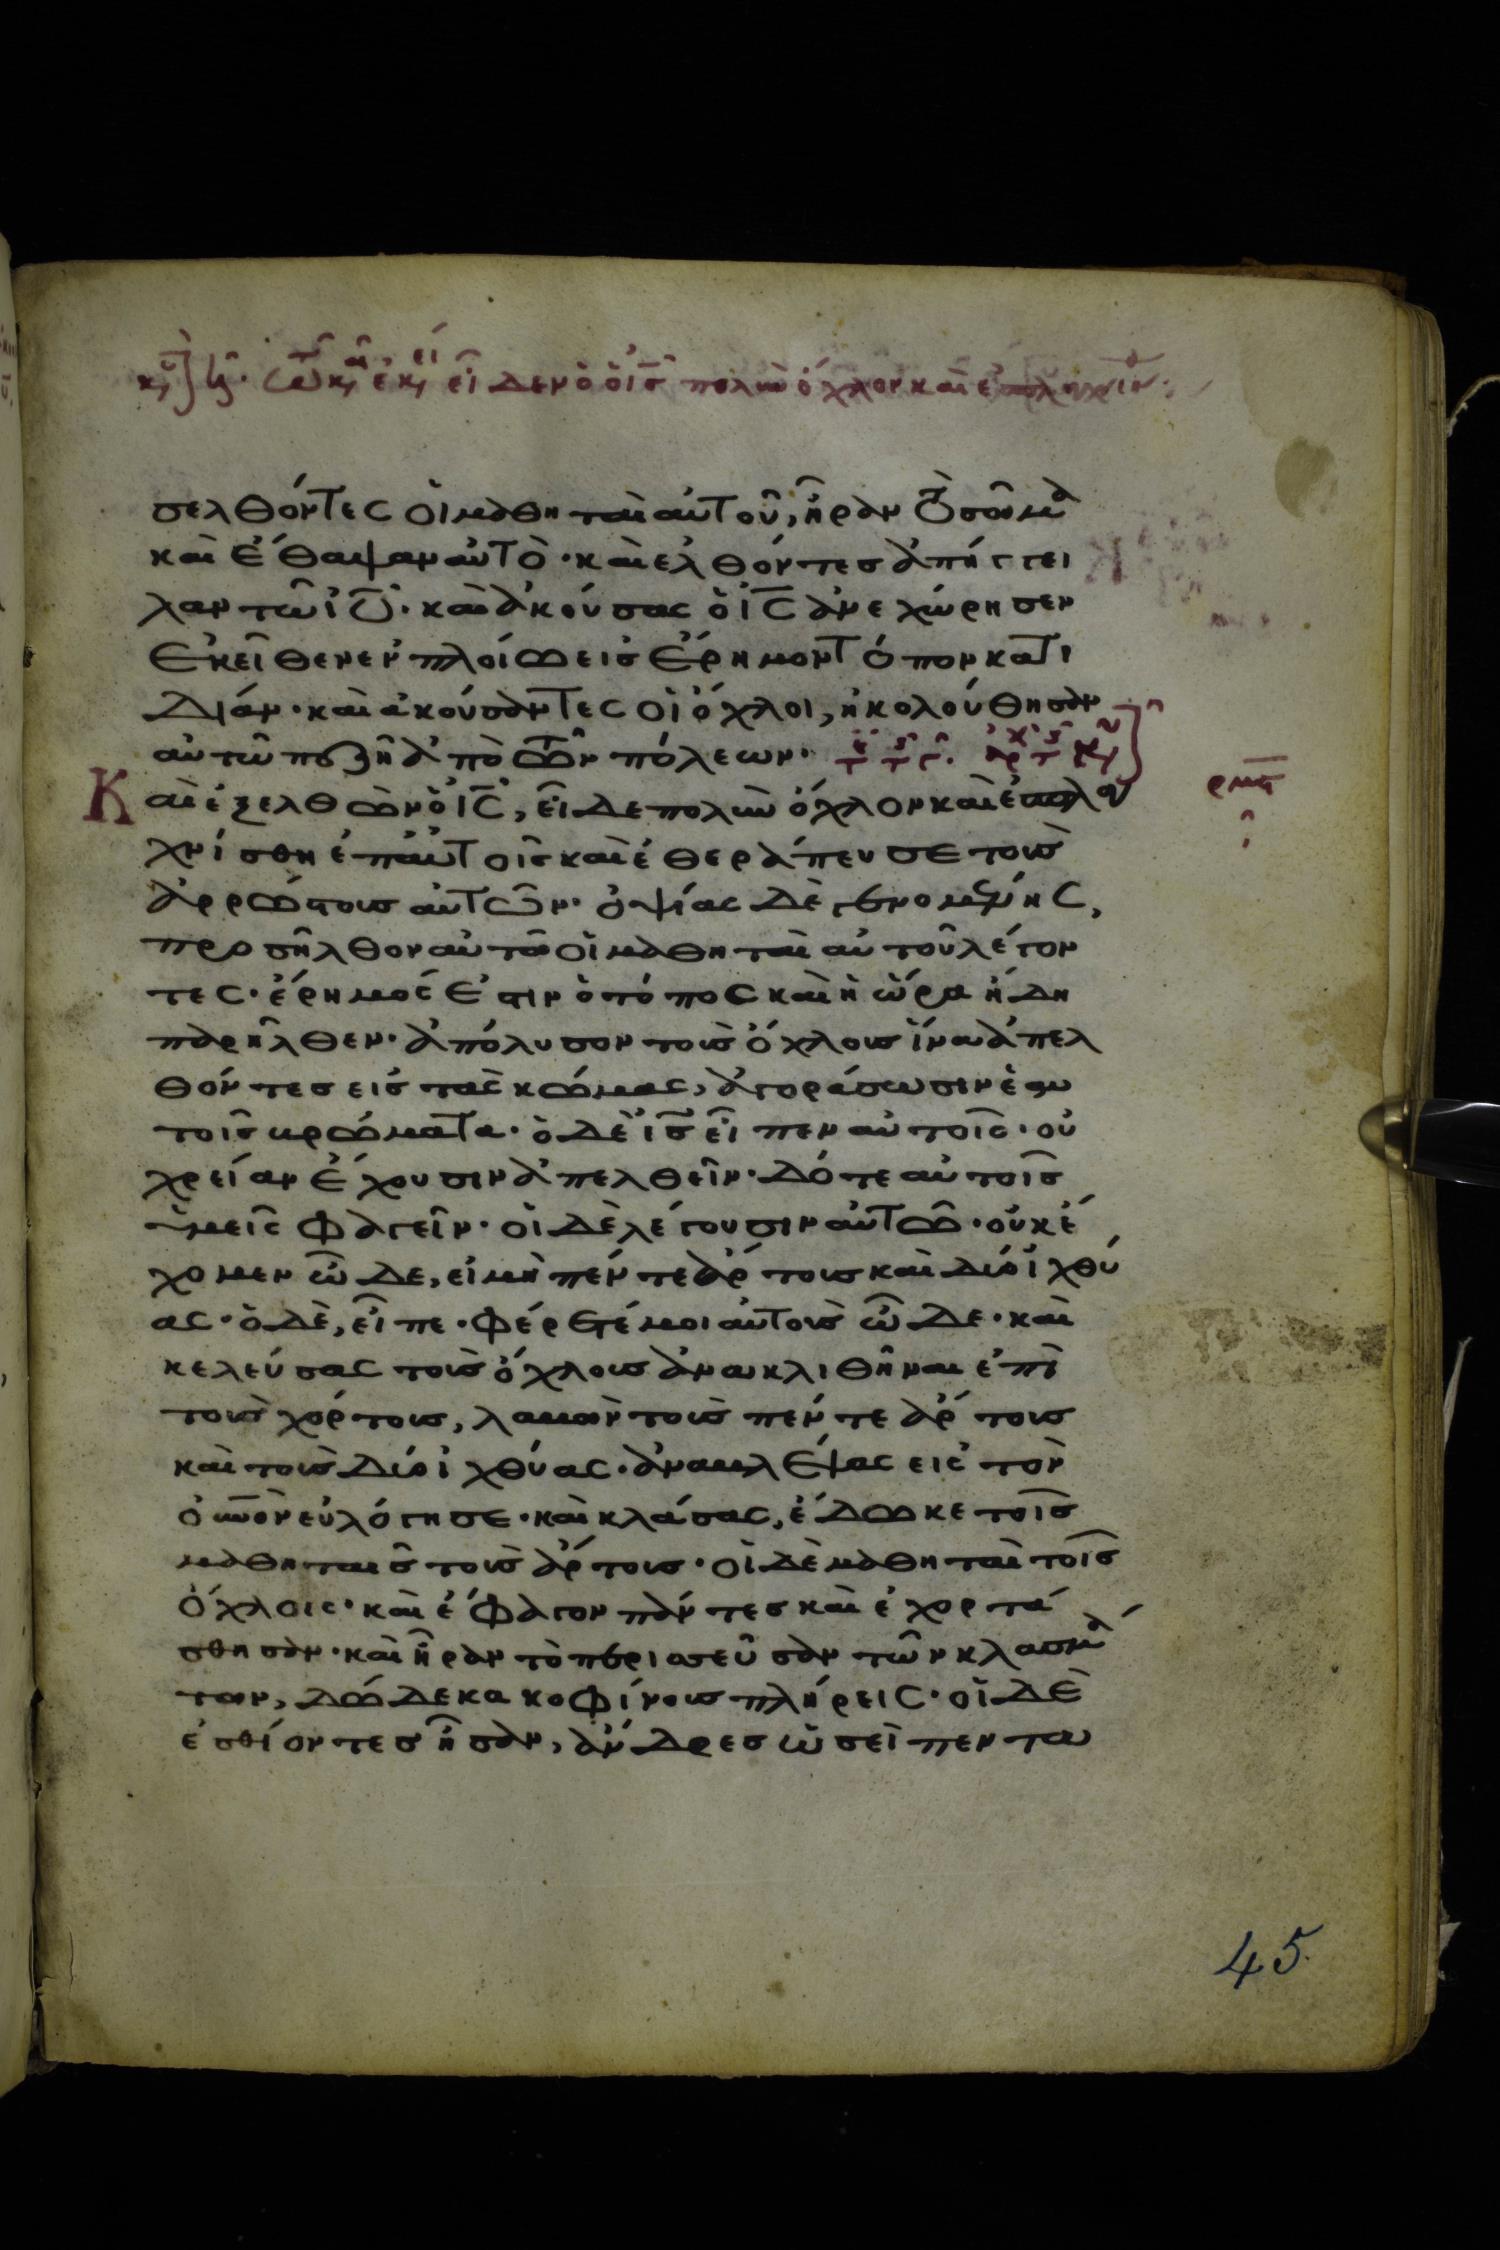 εἶδεν ὁ ὁ ις πολὺν ὄχλον καὶ ἐσπλαγχνίσθ
σελθόντες οἱ μαθηταὶ αὐτοῦ, ἦραν τὸ σῶμα
καὶ ἔθαψαν αὐτὸ· καὶ ἐλθόντες ἀπήγγει
λαν τῶ ιυ· καὶ ἀκούσας ὁ ις ἀνεχώρησεν
ἐκεῖθεν ἐν πλοίω εἰς ἔρημον τόπον κατι
δίαν· καὶ ἀκούσαντες οἱ ὄχλοι, ἠκολούθησαν
αὐτῶ πεζῆ ἀπὸ τῶν πόλεων·
Καὶ ἐξελθὼν ὁ ις, εἶδε πολὺν ὄχλον καὶ ἐσπλαγ
χνίσθη ἐπ αὐτοῖς καὶ ἐθεράπευσε τοὺς
ἀρρώστους αὐτῶν· ὀψίας δὲ γενομένης,
προσῆλθον αὐτῶ οἱ μαθηταὶ αὐτοῦ λέγον
τες· ἔρημός ἐστιν ὁ τόπος καὶ ἡ ὥρα ἤδη
παρῆλθεν· ἀπόλυσον τοὺς ὄχλους ἵνα ἀπελ
θόντες εἰς τὰς κώμας, ἀγοράσωσιν ἑαυ
τοῖς βρώματα· ὁ δὲ ις εἶπεν αὐτοῖς· οὐ
χρείαν ἔχουσιν ἀπελθεῖν· δότε αὐτοῖς
ὑμεῖς φαγεῖν· οἱ δὲ λέγουσιν αὐτῶ· οὐκ ἔ
χομεν ὧδε, εἰ μὴ πέντε ἄρτους καὶ δύο ἰχθύ
ας· ὁ δὲ, εἶπε· φέρετέ μοι αὐτοὺς ὧδε· καὶ
κελεύσας τοὺς ὄχλους ἀνακλιθῆναι ἐπὶ
τοὺς χόρτους, λαβὼν τοὺς πέντε ἄρτους
καὶ τοὺς δύο ἰχθύας· ἀναβλέψας εἰς τὸν
οὐνον εὐλόγησε· καὶ κλάσας, ἔδωκε τοῖς
μαθηταῖς τοὺς ἄρτους· οἱ δὲ μαθηταὶ τοῖς
ὄχλοις· καὶ ἔφαγον πάντες καὶ ἐχορτά
σθησαν· καὶ ἦραν τὸ περισσεῦσαν τῶν κλασμά
των, δώδεκα κοφίνους πλήρεις· οἱ δὲ
ἐσθίοντες ἦσαν, ἄνδρες ὡσεὶ πεντα
45.